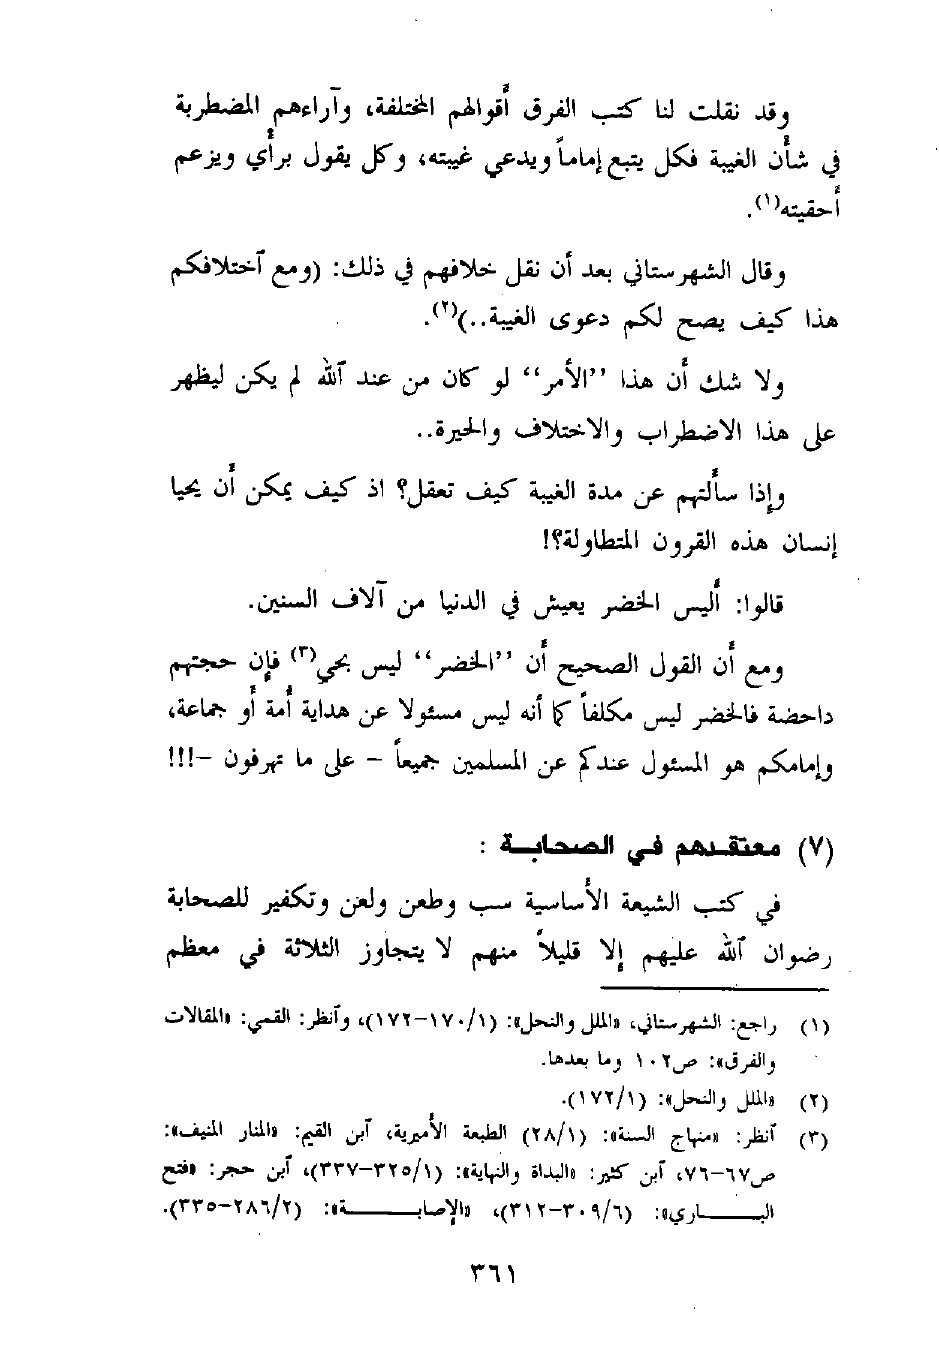 وقد نقلت لنا كتب الفرق أقوالهم المختلفة، وآراءهم المضطربة
في شأن الغيبة فكل يتبع إماماً ويدعي غيبته، وكل يقول برأي ويزعم
أحقيته(١).
وقال الشهرستاني بعد أن نقل خلافهم في ذلك: (ومع آختلافكم
هذا كيف يصح لكم دعوى الغيبة..)(٢).
ولا شك أن هذا ’’الأمر‘‘ لو كان من عند آلله لم يكن ليظهر
على هذا الاضطراب والاختلاف والحيرة..
وإذا سألتهم عن مدة الغيبة كيف تعقل؟ اذ كيف يمكن أن يحيا
إنسان هذه القرون المتطاولة؟!
قالوا: أليس الخضر يعيش في الدنيا من آلاف السنين.
ومع أن القول الصحيح أن ’’الخضر‘‘ ليس بحي(٣) فإن حجتهم
داحضة فالخضر ليس مكلفاً كما أنه ليس مسئولا عن هداية أمة أو جماعة،
وإمامكم هو المسئول عندكم عن المسلمين جميعاً – على ما تهرفون –!!!
(٧) معتقدهم في الصحابة :
في كتب الشيعة الأساسية سب وطعن ولعن وتكفير للصحابة
رضوان آلله عليهم إلا قليلاً منهم لا يتجاوز الثلاثة في معظم
(١) راجع: الشهرستاني، «الملل والنحل»: (١/‏١٧٠–١٧٢)، وآنظر: القمي: «المقالات
والفرق»: ص١٠٢ وما بعدها.
(٢) «الملل والنحل»: (١/‏١٧٢).
(٣) آنظر: «منهاج السنة»: (١/‏٢٨) الطبعة الأميرية، آبن القيم: «المنار المنيف»:
ص٦٧–٧٦، آبن كثير: «البداة والنهاية»: (١/‏٣٢٥–٣٣٧)، آبن حجر: «فتح
البـــاري»: (٦/‏٣٠٩–٣١٢)، «الإصابـــة»: (٢/‏٢٨٦–٣٣٥).
٣٦١